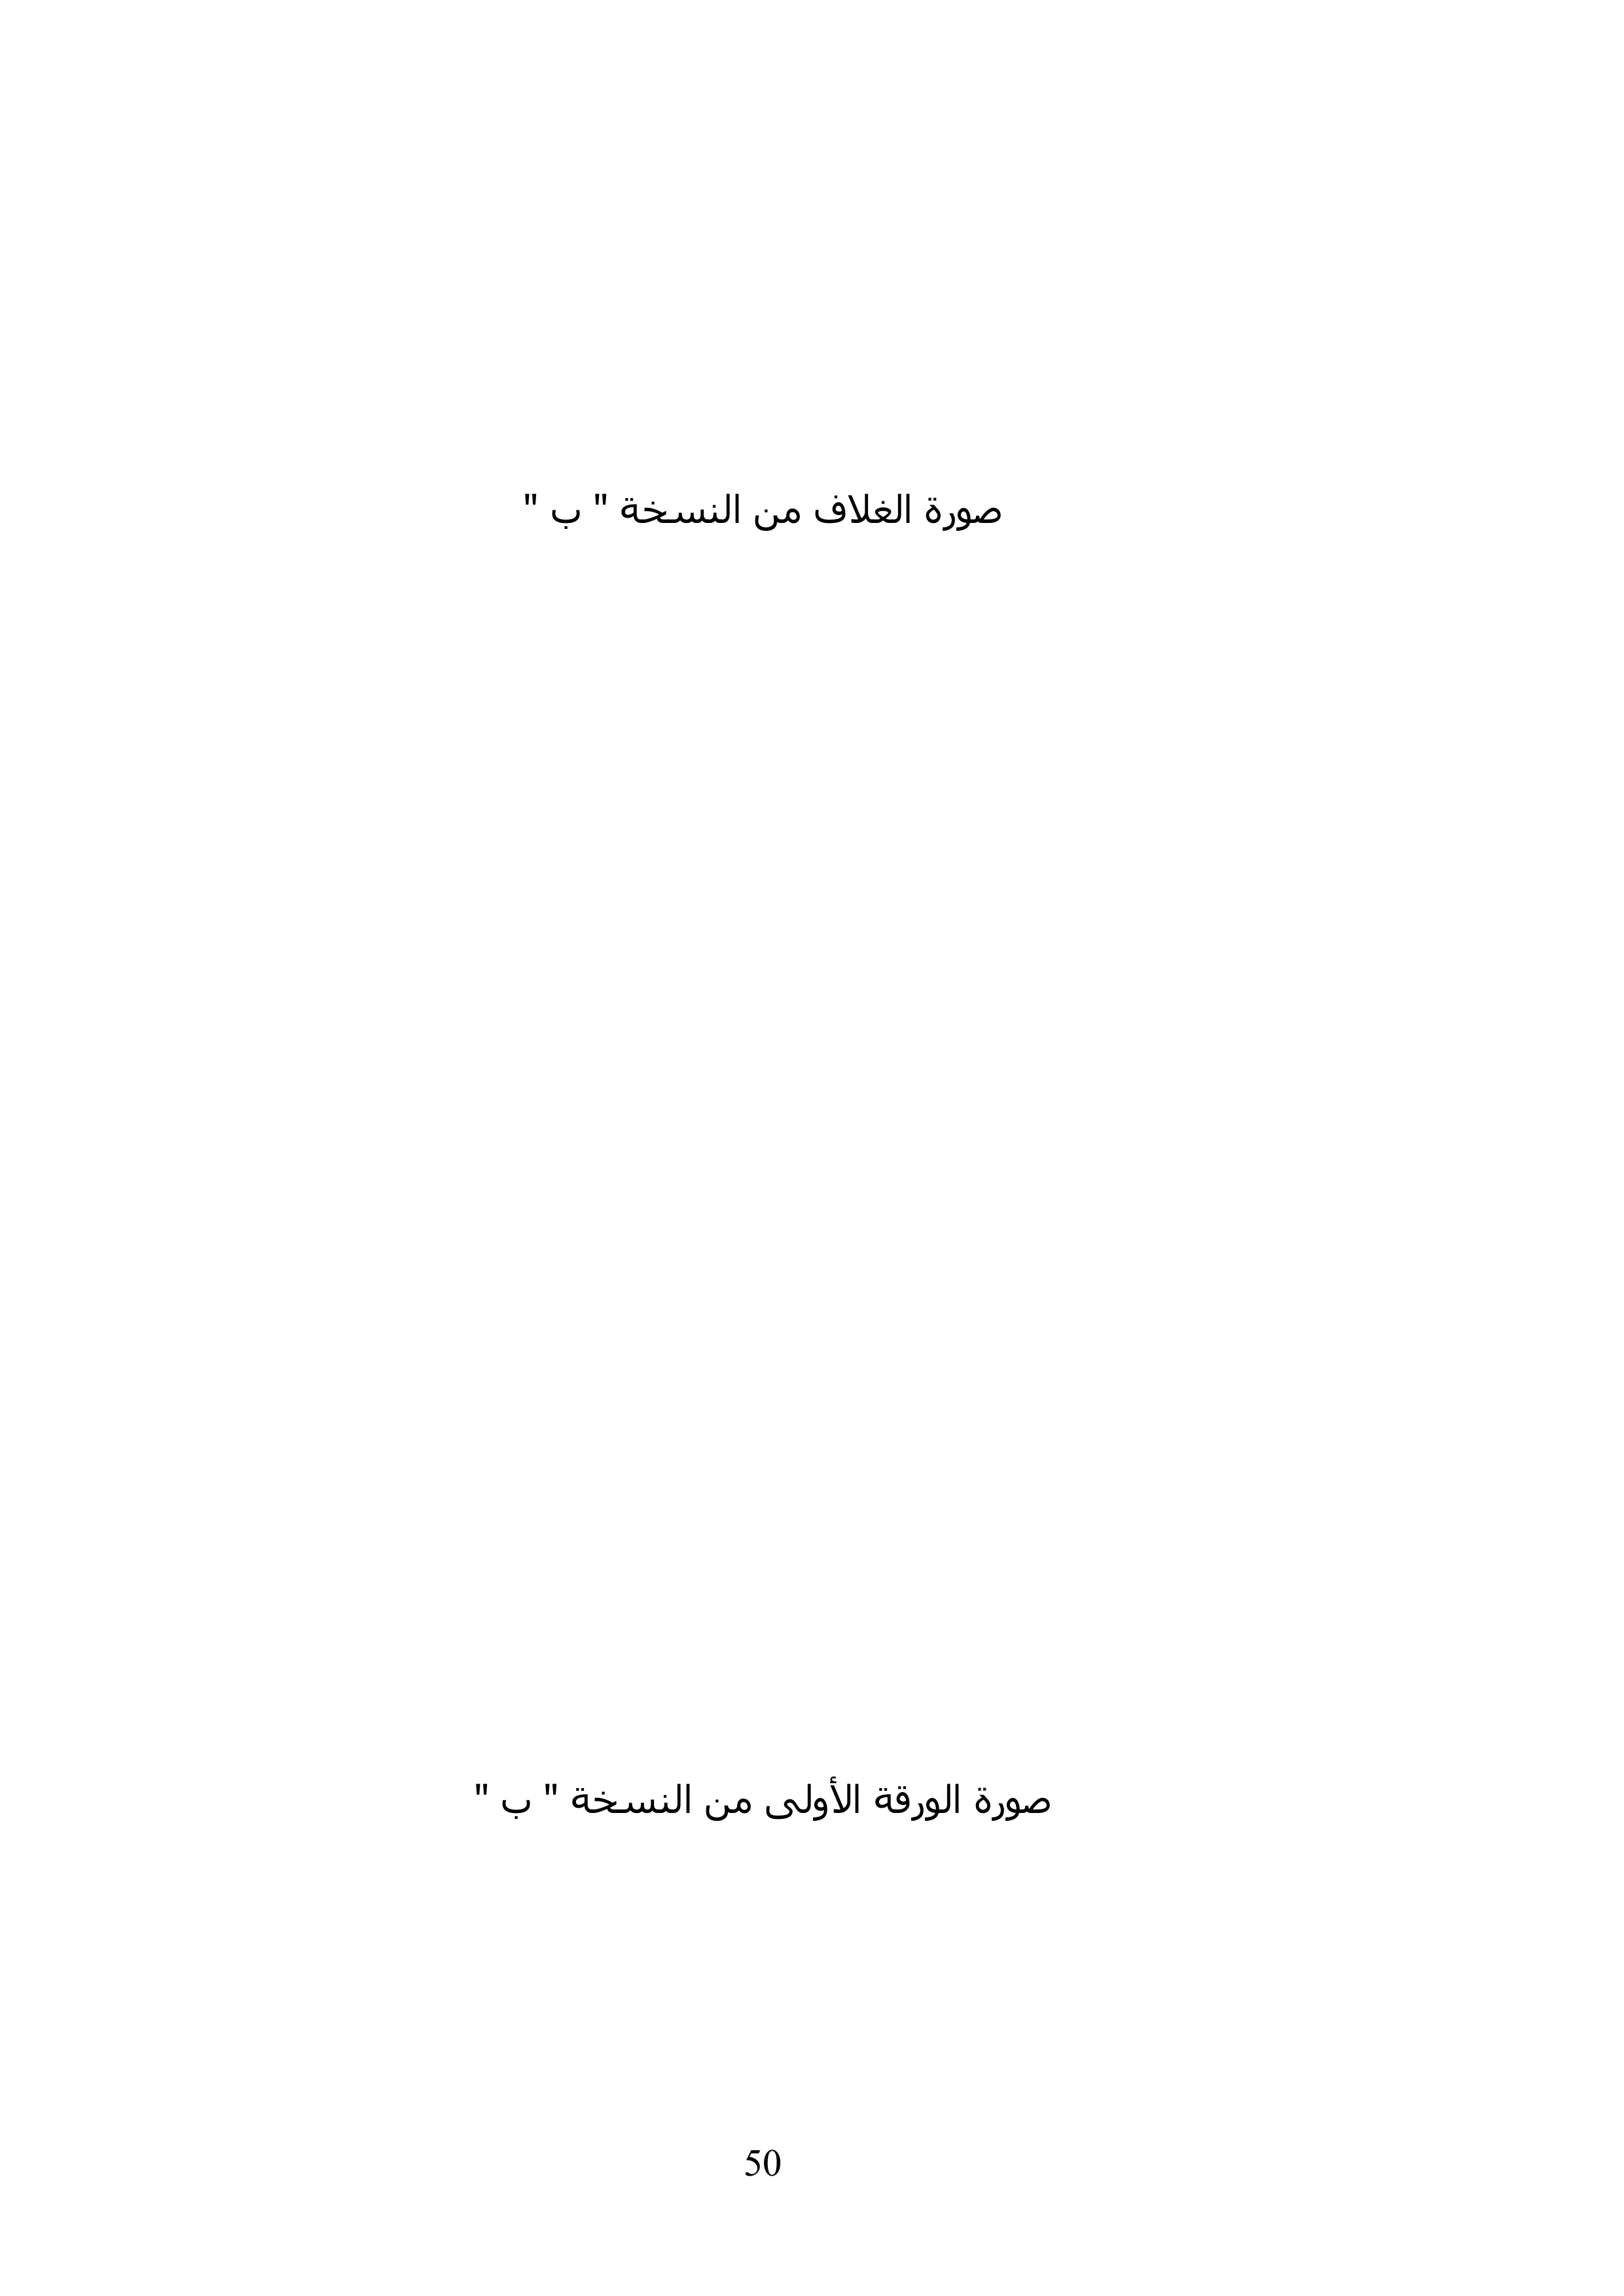 صورة الغلاف من النسخة " ب "
صورة الورقة الأولى من النسخة " ب "
50